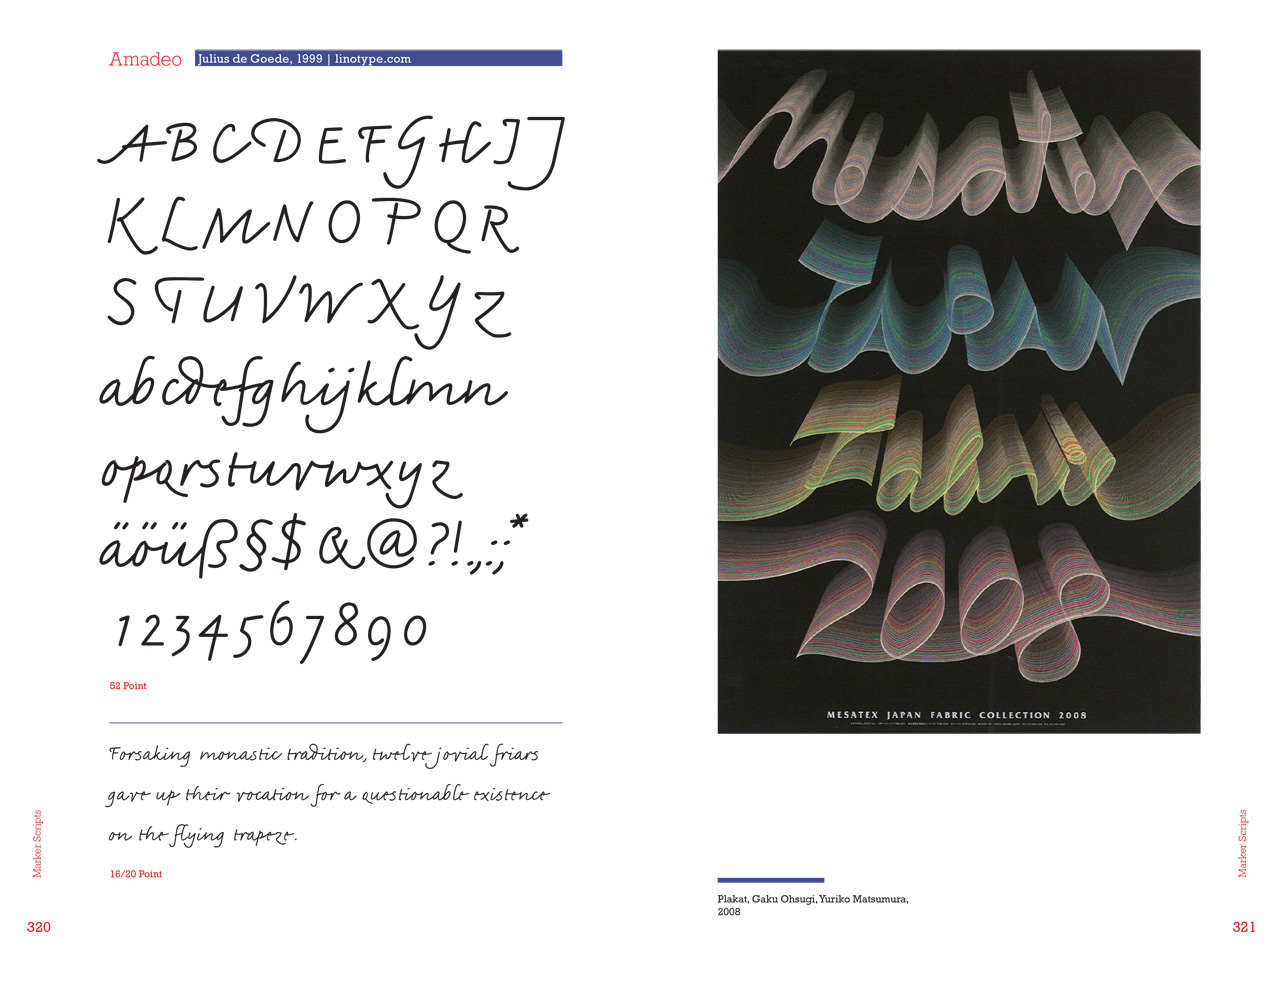 Amadeo Julius de Goede, 1999 | linotype.com
A B C D E F G H I J
K L M N O P Q R
S T U V W X Y Z
a b c d e f g h i j k l m n
o p q r s t u v w x y z
ä ö ü ß § $ & @ ? ! . , : ; *
1 2 3 4 5 6 7 8 9 0
52 Point
Forsaking monastic tradition, twelve jovial friars
gave up their vocation for a questionable existence
on the flying trapeze.
16/20 Point
Marker Scripts
320
MESATEX JAPAN FABRIC COLLECTION 2008
Plakat, Gaku Ohsugi, Yuriko Matsumura,
2008
Marker Scripts
321